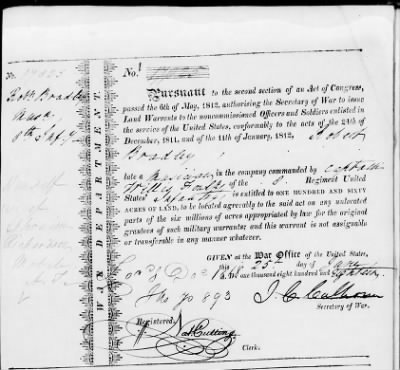 No.
Robt Bradley
Musn
8th Infy
WAR DEPARTMENT.
No. 1
Pursuant to the second section of an Act of Congress,
passed the 6th of May, 1812, authorising the Secretary of War to issue
Land Warrants to the noncommissioned Officers and Soldiers enlisted in
the service of the United States, conformably to the acts of the 24th of
December, 1811, and of the 11th of January, 1812, Robert
Bradley
late a Musician in the company commanded by Captain
of the 8 Regiment United
States Infantry is entitled to ONE HUNDRED AND SIXTY
ACRES OF LAND, to be located agreeably to the said act on any unlocated
parts of the six millions of acres appropriated by law for the original
grantees of such military warrants; and this warrant is not assignable
or transferable in any manner whatever.
GIVEN at the War Office of the United States,
this 25th day of
A.D. one thousand eight hundred and eighteen
Dec 1818
No 893
J. C. Calhoun
Secretary of War.
Registered,
Nat Cutting
Clerk.